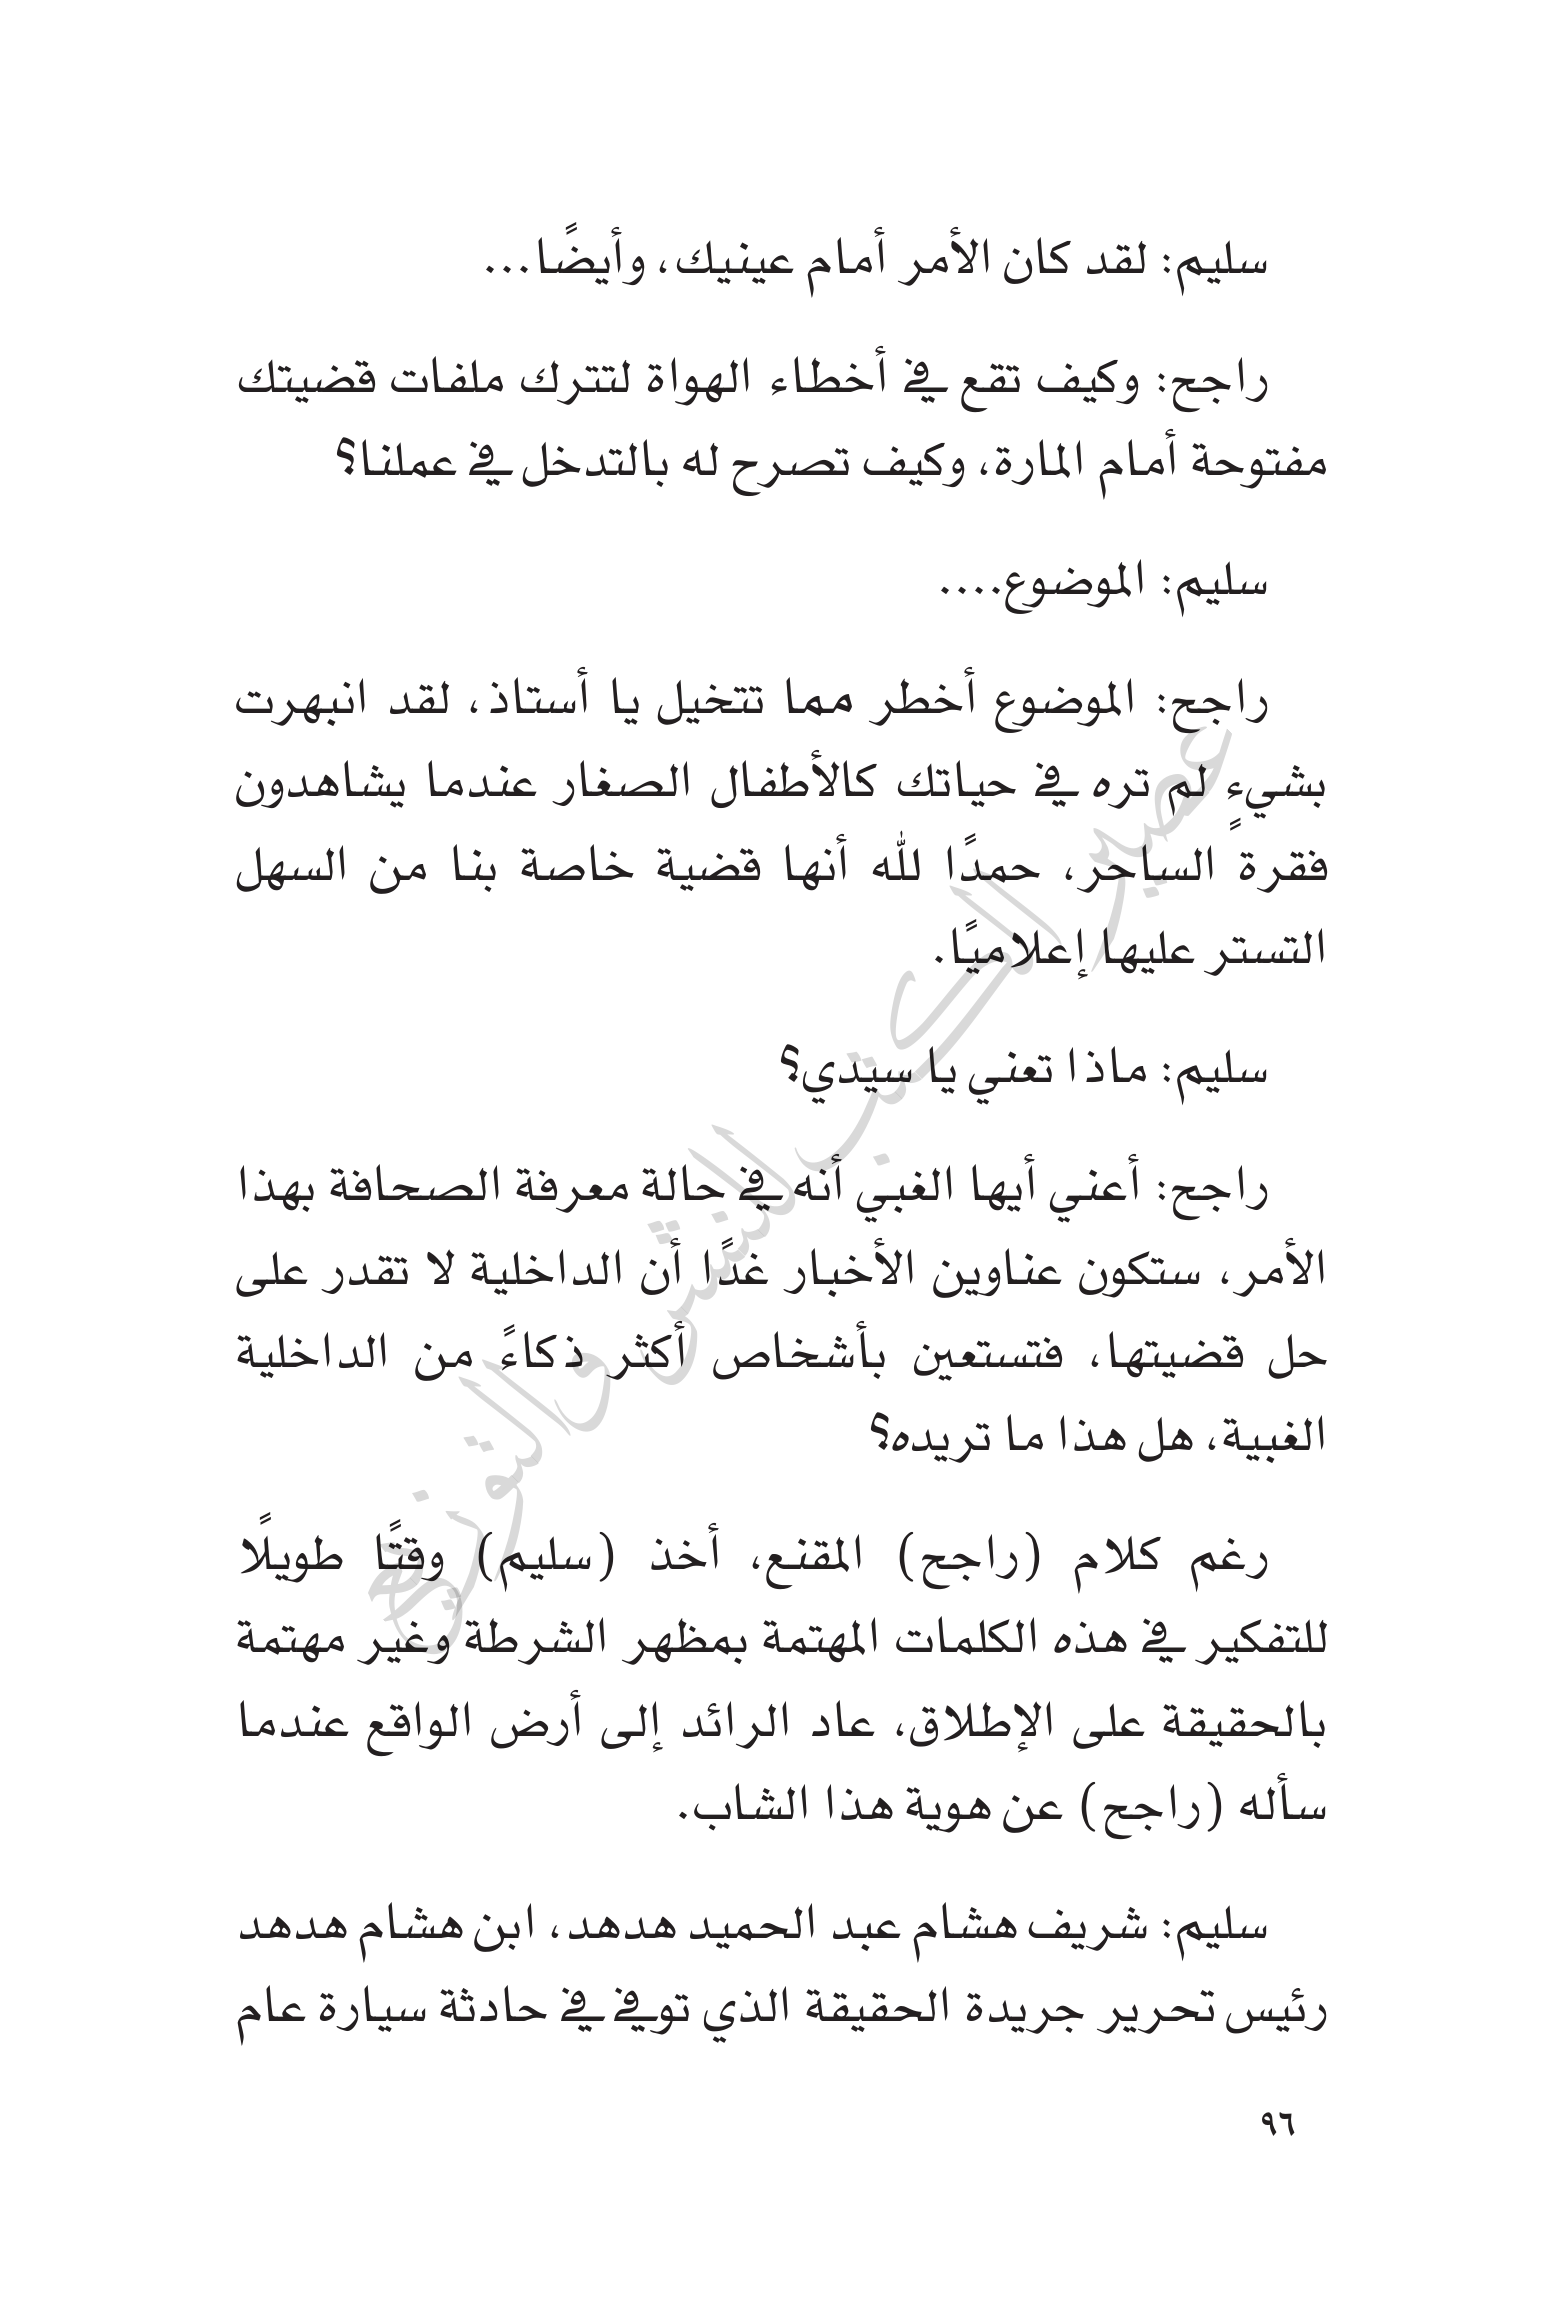 سليم: لقد كان الأمر أمام عينيك، وأيضًا...
راجح: وكيف تقع في أخطاء الهواة لتترك ملفات قضيتك
مفتوحة أمام المارة، وكيف تصرح له بالتدخل في عملنا؟
سليم: الموضوع....
راجح: الموضوع أخطر مما تتخيل يا أستاذ، لقد انبهرت
بشيءٍ لم تره في حياتك كالأطفال الصغار عندما يشاهدون
فقرة الساحر، حمدًا لله أنها قضية خاصة بنا من السهل
التستر عليها إعلاميًا.
سليم: ماذا تعني يا سيدي؟
راجح: أعني أيها الغبي أنه في حالة معرفة الصحافة بهذا
الأمر، ستكون عناوين الأخبار غدًا أن الداخلية لا تقدر على
حل قضيتها، فتستعين بأشخاص أكثر ذكاءً من الداخلية
الغبية، هل هذا ما تريده؟
رغم كلام (راجح) المقنع، أخذ (سليم) وقتًا طويلًا
للتفكير في هذه الكلمات المهتمة بمظهر الشرطة وغير مهتمة
بالحقيقة على الإطلاق، عاد الرائد إلى أرض الواقع عندما
سأله (راجح) عن هوية هذا الشاب.
سليم: شريف هشام عبد الحميد هدهد، ابن هشام هدهد
رئيس تحرير جريدة الحقيقة الذي توفي في حادثة سيارة عام
٩٦
عصير الكتب للنشر والتوزيع